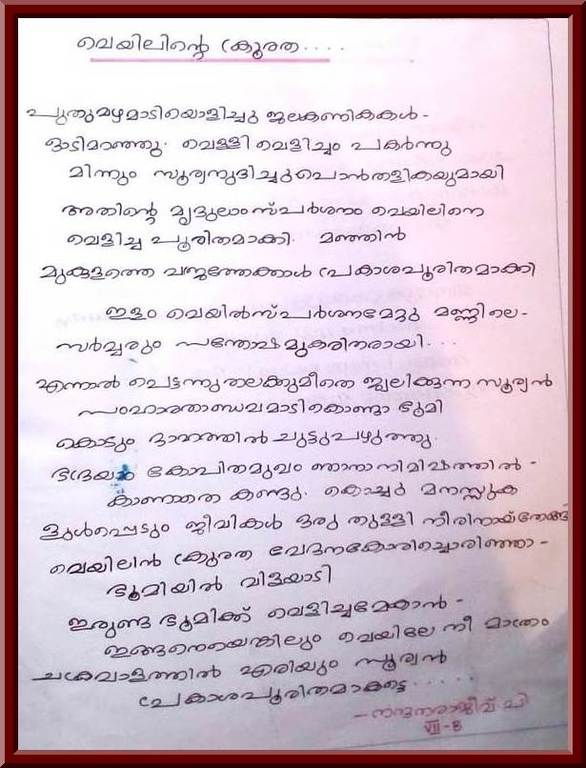 വെയിലിന്റെ ക്രൂരത....
പുതുമഴമാടിയൊളിച്ചു ജലകണികകൾ-
ഓടിമറഞ്ഞു. വെള്ളി വെളിച്ചം പകർന്നു
മിന്നും സൂര്യനുദിച്ചുപൊൻതളികയുമായി
അതിന്റെ മൃദുലാംസ്പർശനം വെയിലിനെ
വെളിച്ച പൂരിതമാക്കി. മഞ്ഞിൻ
മുകുളത്തെ വജ്രത്തേക്കാൾ പ്രകാശപൂരിതമാക്കി
ഇളം വെയിൽസ്പർശനമേറ്റു മണ്ണിലെ-
സർവ്വരും സന്തോഷമുകരിതരായി...
എന്നാൽ പെട്ടന്നുതലക്കുമീതെ ജ്വലിക്കുന്ന സൂര്യൻ
സംഹാരതാണ്ഡവമാടികൊണ്ടാ ഭൂമി
കൊടും ദാഹത്തിൽ ചുട്ടുപഴുത്തു.
കോപിതമുഖം ഞാനാനിമിഷത്തിൽ-
കാണാതെ കണ്ടു. കൊച്ചു മനസ്സുക
ളുൾപ്പെടും ജീവികൾ ഒരു തുള്ളി നീരിനായ്തേങ്ങി
വെയിലിൻ ക്രൂരത വേദനകോരിച്ചൊരിഞ്ഞാ-
ഭൂമിയിൽ വിളയാടി
ഇരുണ്ട ഭൂമിക്ക് വെളിച്ചമേകാൻ-
ഇങ്ങനെയെങ്കിലും വെയിലേ നീ മാത്രം
ചക്രവാളത്തിൽ എരിയും സൂര്യൻ
പ്രകാശപൂരിതമാകട്ടെ.....
-നന്ദനരാജീവ്.പി
VIII-B